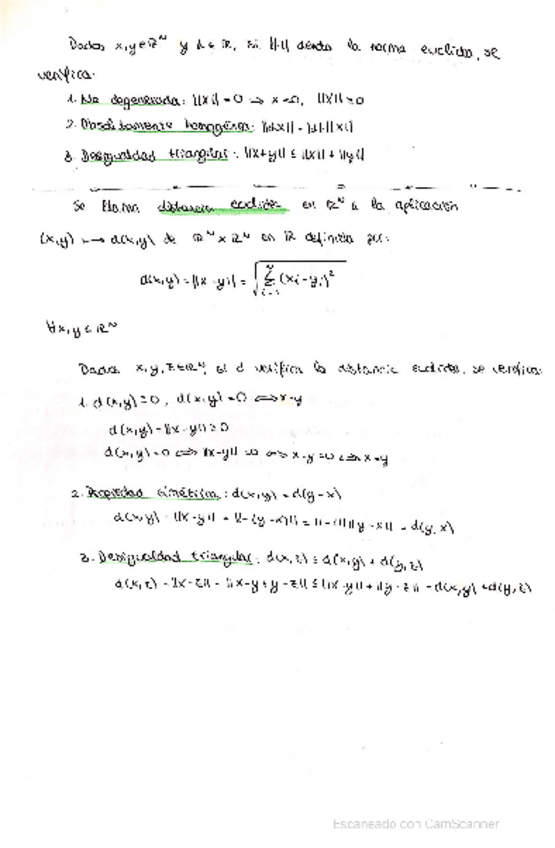 Dados x,y∈ℝᴺ y λ∈ℝ, si ||·|| denota la norma euclídea, se
verifica:
1. No degenerada: ||x||=0 ⇒ x=0, ||x||≥0
2. Absolutamente homogénea: ||λx||=|λ|·||x||
3. Desigualdad triangular: ||x+y|| ≤ ||x||+||y||
Se llama distancia euclídea en ℝᴺ a la aplicación
(x,y) ↦ d(x,y) de ℝᴺ×ℝᴺ en ℝ definida por:
d(x,y)=||x-y||=√∑ᵢ₌₁ᴺ(xᵢ-yᵢ)²
∀x,y∈ℝᴺ
Dados x,y,z∈ℝᴺ, si d verifica la distancia euclídea, se verifica:
1. d(x,y)≥0, d(x,y)=0 ⟺ x=y
d(x,y)=||x-y||≥0
d(x,y)=0 ⟺ ||x-y||=0 ⟺ x-y=0 ⟺ x=y
2. Propiedad simétrica: d(x,y)=d(y-x)
d(x,y)=||x-y||=||-(y-x)||=|-1|||y-x||=d(y,x)
3. Desigualdad triangular: d(x,z)≤d(x,y)+d(y,z)
d(x,z)=||x-z||=||x-y+y-z||≤||x-y||+||y-z||=d(x,y)+d(y,z)
Escaneado con CamScanner